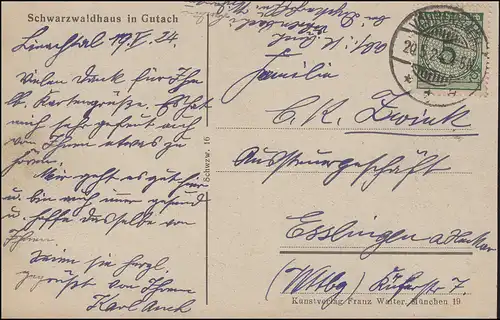 Schwarzwaldhaus in Gutach
Linachtal 19.V.24.
Vielen Dank für Ihre
lb. Kartengrüße. Es hat
mich sehr gefreut auch
von Ihnen etwas zu
hören.
Mir geht es gut hier
u. bin auch immer gesund
u. hoffe dasselbe von
Ihnen.
Seien sie herzl.
gegrüßt von Ihrem
Karl
Schwzw. 16
5
Familie
C. K. Zwink
Aussteuergeschäft
Esslingen a. Neckar
(Wttbg) 7.
Kunstverlag Franz Walter, München 19